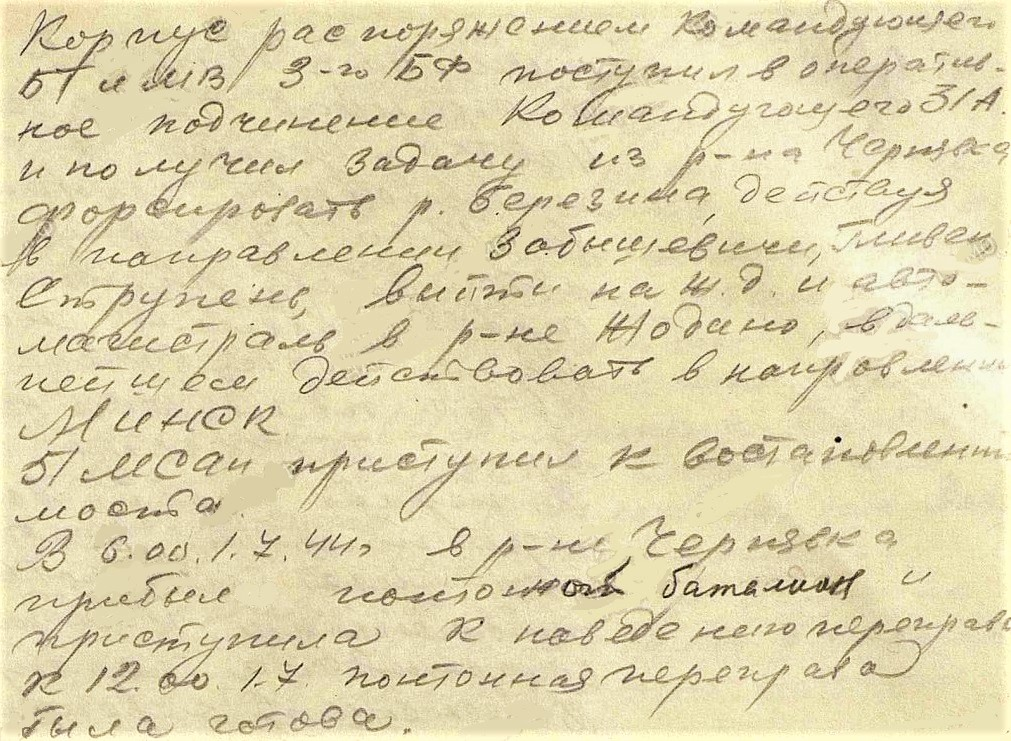 Корпус распоряжением Командующего
БТ и МВ 3-го БФ поступил в оператив-
ное подчинение Командующего 31А.
и получил задачу из р-на Чернявка
форсировать р. Березина, действуя
в направлении Забышевичи, Гливен
Струпень, выйти на ж.д. и авто-
магистраль в р-не Жодино, в даль-
нейшем действовать в направлении
МИНСК
51 МСап приступил к востановлению
моста.
В 6.00.1.7.44г в р-не Чернявка
прибыл понтоный баталион и
приступила к наведению переправы
К 12.00. 1.7 понтонная переправа
была готова.